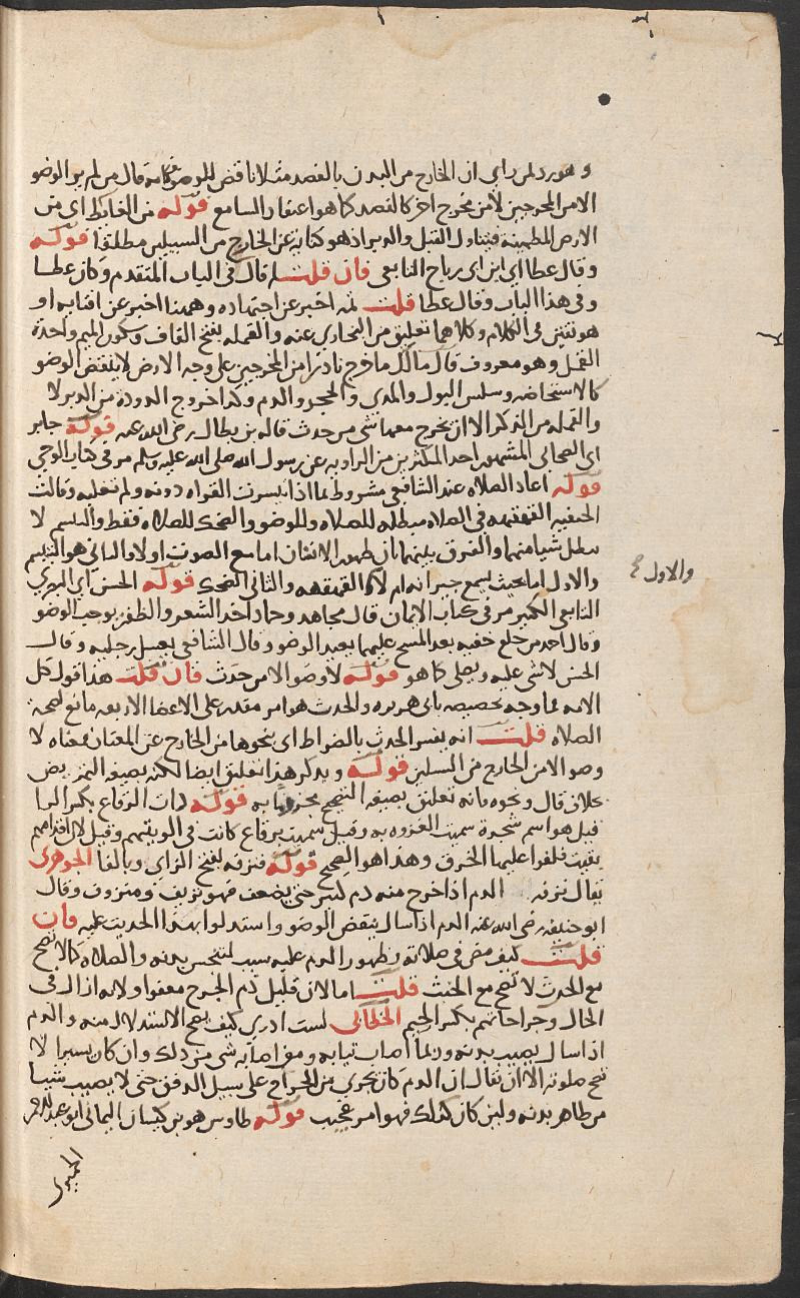 وهو رد لمن راي ان الخارج من البدن بالفصد مثلا ناقض للوضو فكانه قال من لم ير الوضو
الا من المخرجين لا من مخرج اخر كالفصد كما هو اعتقاد السامع قوله من الغايط اي من
الارض المطمينه فيتناول القبل والدبر اذ هو كنايه عن الخارج من السبيلين مطلقا قوله
وقال عطا اي ابن ابي رباح التابعي فان قلت لم قال في الباب المتقدم وكان عطا
وفي هذا الباب وقال عطا قلت ثمه اخبر عن اجتهاده وههنا اخبر عن افتايه او
هو تفنن في الكلام وكلاهما تعليق من البخاري عنه والقمله بفتح القاف وسكون الميم واحدة
القمل وهو معروف قال مالك ما خرج نادرا من المخرجين على وجه الارض لا ينقض الوضو
كالاستحاضه وسلس البول والمذي والحجر والدم وكذا خروج الدوده من الدبر لا
والقمله من الذكر الا ان يخرج معها شي من حدث قاله بن بطال رضي الله عنه قوله جابر
اي الصحابي المشهور احد المكثرين من الروايه عن رسول الله صلى الله عليه وسلم مر في كتاب الوحي
قوله اعاد الصلاه عند الشافعي مشروط بما اذا تيسرت القراه دونه ولم تغلبه وقالت
الحنفيه القهقهه في الصلاه مبطله للصلاه وللوضو والضحك للصلاه فقط والتبسم لا
يبطل شيا منهما والفرق بينهما بان ظهور الاسنان اما مع الصوت اولا والثاني هو التبسم
والاول اما بحيث يسمع جيرانه ام لا فالقهقهه والثاني الضحك قوله الحسن اي البصري
التابعي الكبير مر في كتاب الايمان قال مجاهد وحماد اخذ الشعر والظفر يوجب الوضو
وقال احمد من خلع خفيه بعد المسح عليهما يعيد الوضو وقال الشافعي يغسل رجليه وقال
الحسن لا شي عليه ويصلي كما هو قوله لا وضو الا من حدث فان قلت هذا قول كل
الامه فما وجه تخصيصه بابي هريره والحدث هو امر مقدر على الاعضا الاربعه مانع لصحة
الصلاه قلت انه يفسر الحدث بالضراط اي نحوها من الخارج عن المعتاد فمعناه لا
وضو الا من الخارج من السبيلين قوله ويذكر هذا تعليق ايضا لكنه بصيغه التمريض
بخلاف قال ونحوه فانه تعليق بصيغه التصحيح مجزوما به قوله ذات الرقاع بكسر الرا
قيل هو اسم شجرة سميت الغزوه به وقيل سميت برقاع كانت في الويتهم وقيل لان اقدامهم
نقبت فلفوا عليها الخرق وهذا هو الصحيح قوله فنزفه بفتح الزاي وبالفا الجوهري
يقال نزفه الدم اذا خرج منه دم كثير حتى يضعف فهو نزيف ومنزوف وقال
ابو حنيفه رضي الله عنه الدم اذا سال ينقض الوضو واستدلوا بهذا الحديث عليه فان
قلت كيف مضى في صلاته وظهور الدم عليه سبب لتنجس بدنه والصلاه كما لا تصح
مع الحدث لا تصح مع الخبث قلت اما لان قليل دم الجرح معفو او لانه ازاله في
الحال وجراحاتهم بكسر الجيم الخطابي لست ادري كيف يصح الاستدلال منه والدم
اذا سال يصيب بدنه وربما اصاب ثيابه ومع اصابه شي من ذلك وان كان يسيرا لا
تصح صلوته الا ان يقال ان الدم كان يجري من الجراح على سبيل الدفق حتى لا يصيب شيا
من ظاهر بدنه ولين كان كذلك فهو امر عجيب قوله طاوس هو بن كيسان اليماني ابو عبد الرحمن
الحميري
والاول صح